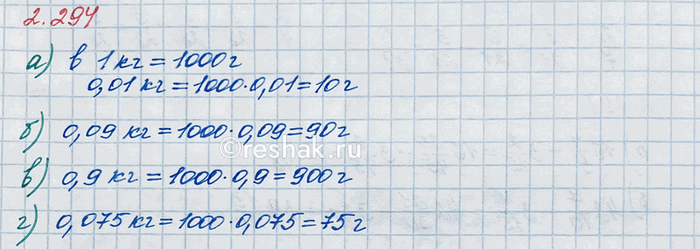 2.294
а) в 1 кг = 1000 г
0,01 кг = 1000·0,01 = 10 г
б) 0,09 кг = 1000·0,09 = 90 г
©reshak.ru
в) 0,9 кг = 1000·0,9 = 900 г
г) 0,075 кг = 1000·0,075 = 75 г